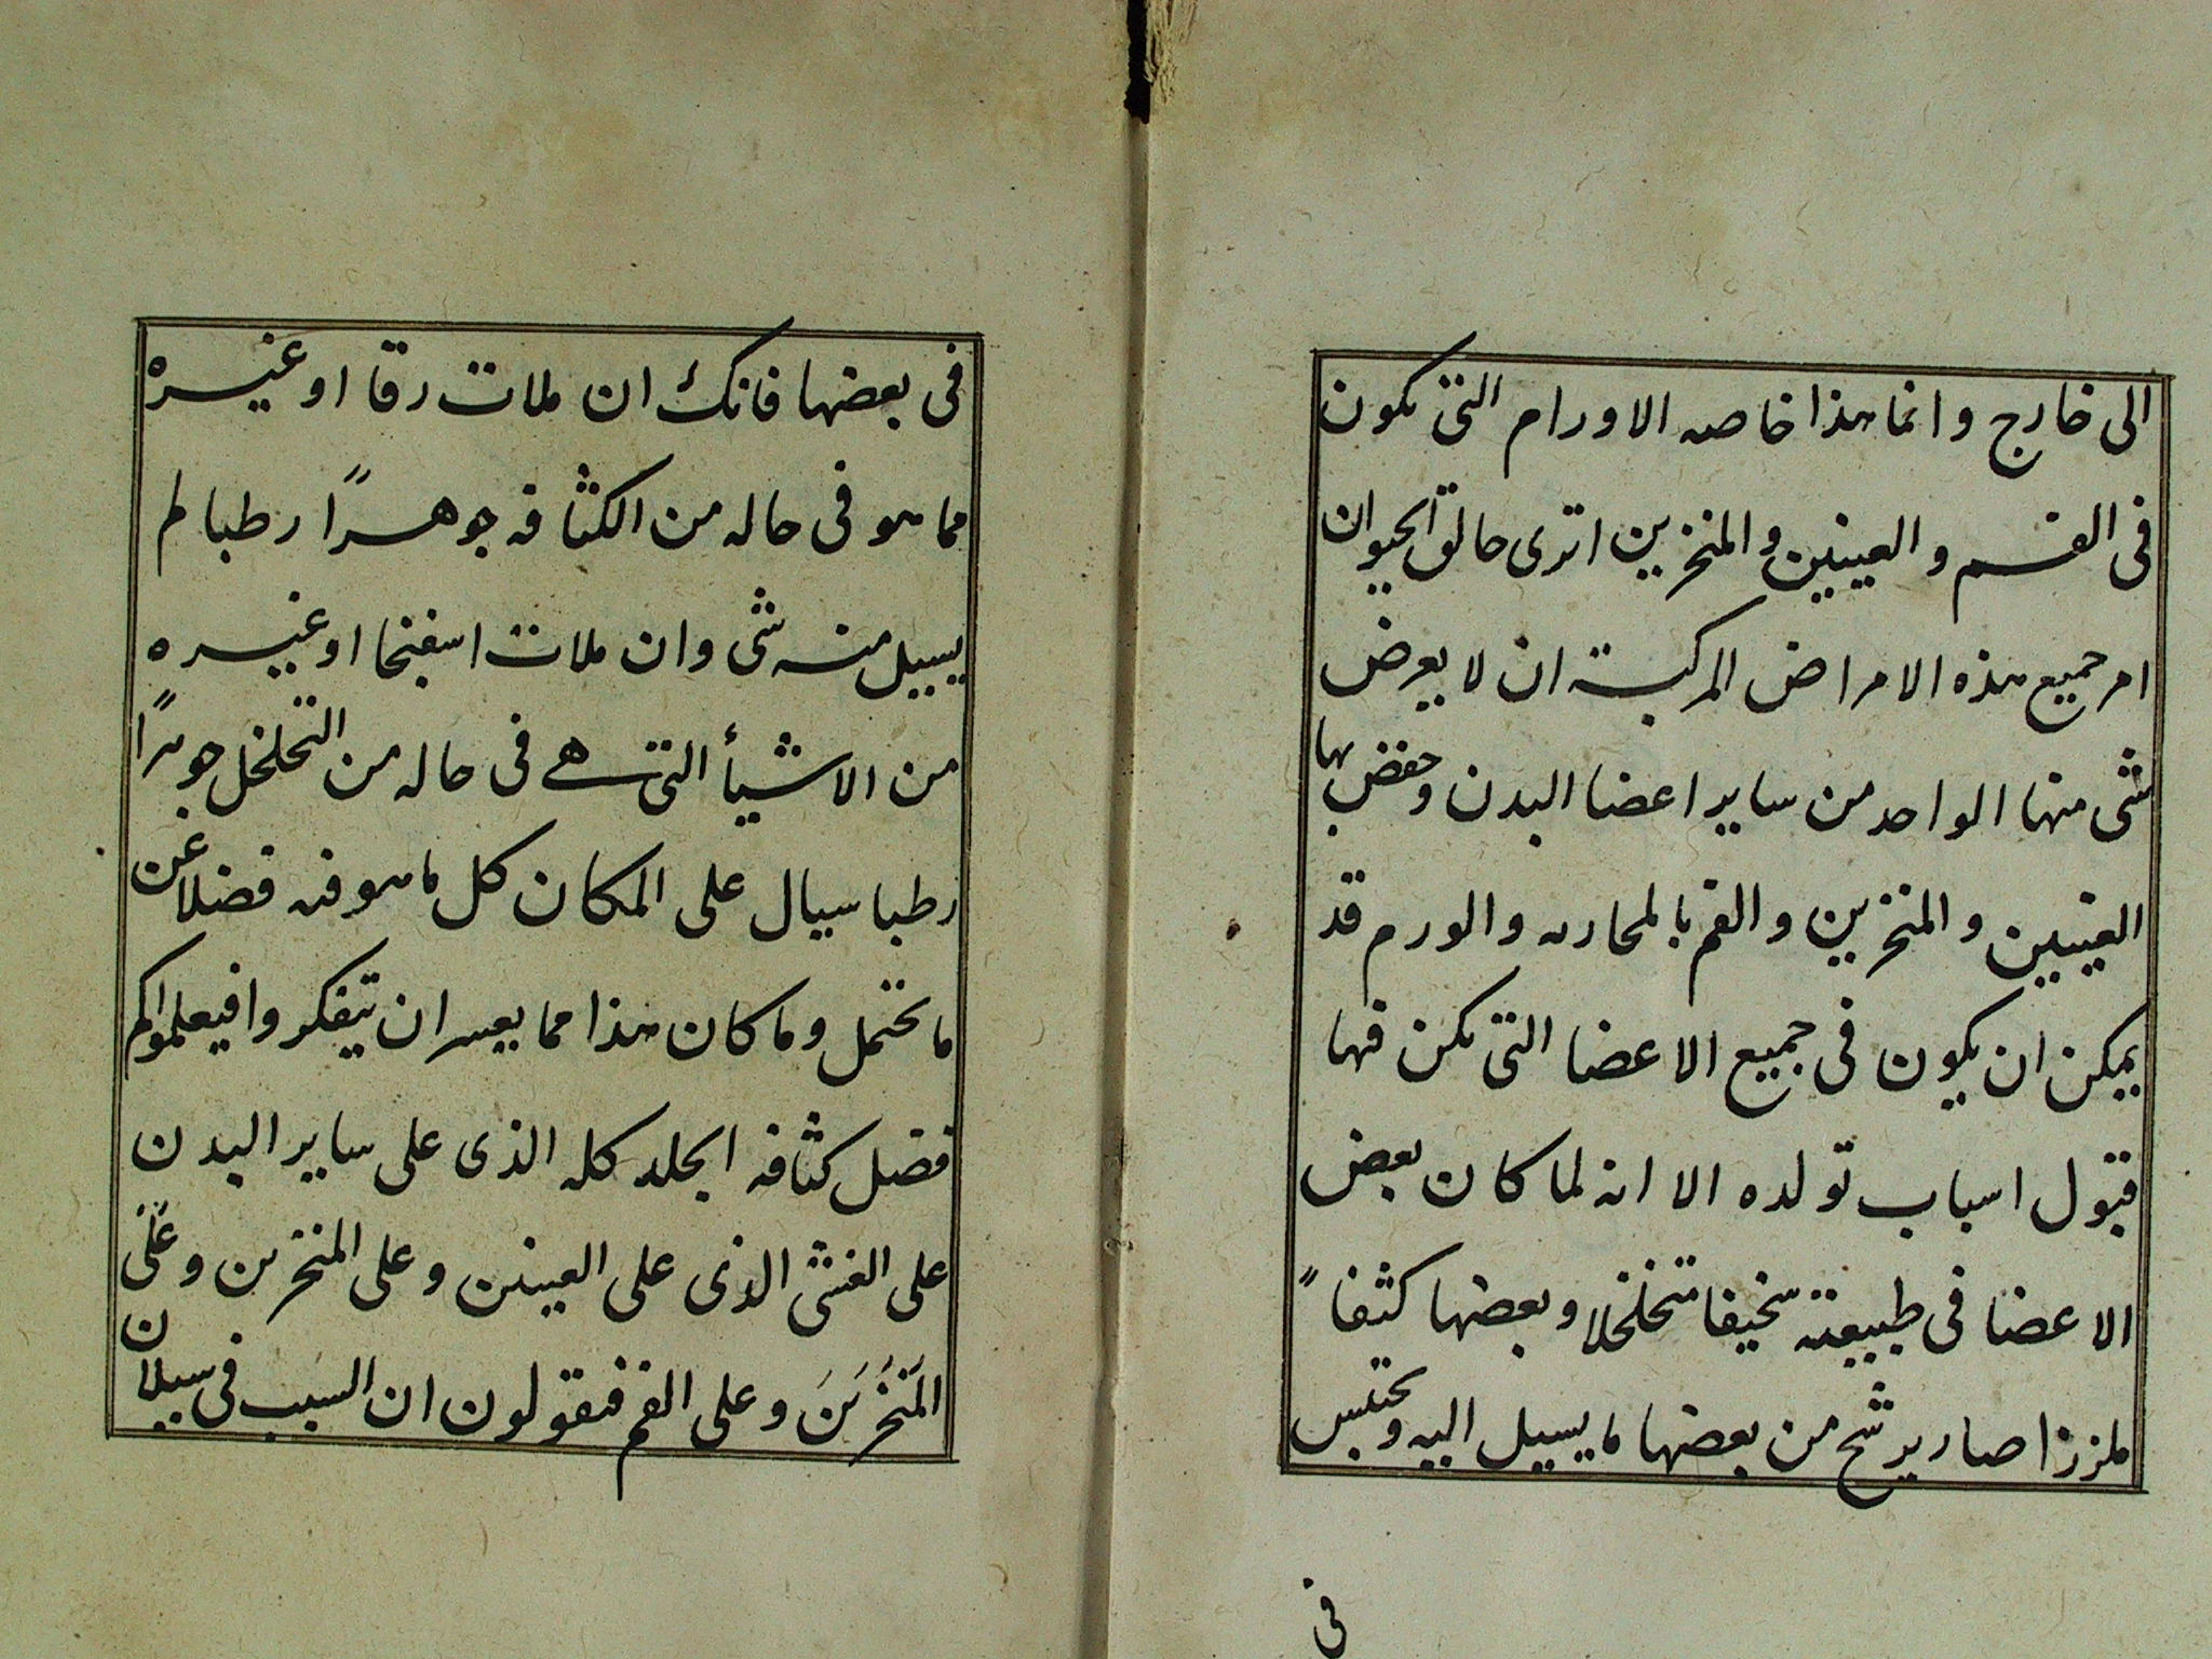 الى خارج وانما هذا خاصه الاورام التى تكون
فى الفم والعينين والمنخزين اترى خالق الحيوان
امر جميع هذه الامراض المركبة ان لا يعرض
شى منها الواحد من ساير اعضا البدن وخفض بها
العينين والمنخزين والفم بالمحاربه والورم قد
يمكن ان يكون فى جميع الاعضا التى يكن فيها
قبول اسباب تولده الا انه لما كان بعض
الاعضا فى طبيعته سخيفا متخلخلا وبعضها كثيفاً
ملززا صار يرشح من بعضها ما يسيل اليه ويحتبس
فى
فى بعضها فانك ان ملات زقا او غيره
مما هو فى حاله من الكثافه جوهراً رطبا لم
يسيل منه شى وان ملات اسفنجا او غيره
من الاشيأ التى هى فى حاله من التخلخل جوهراً
رطبا سيال على المكان كل ما هو فيه فضلا عن
ما تحتمل وما كان هذا مما يعسر ان يتفكروا فيعلموا كم
فضل كثافه الجلد كله الذى على ساير البدن
على الغشى الذى على العينين وعلى المنخزين وعلى
المنخزين وعلى الفم فيقولون ان السبب فى سيلان